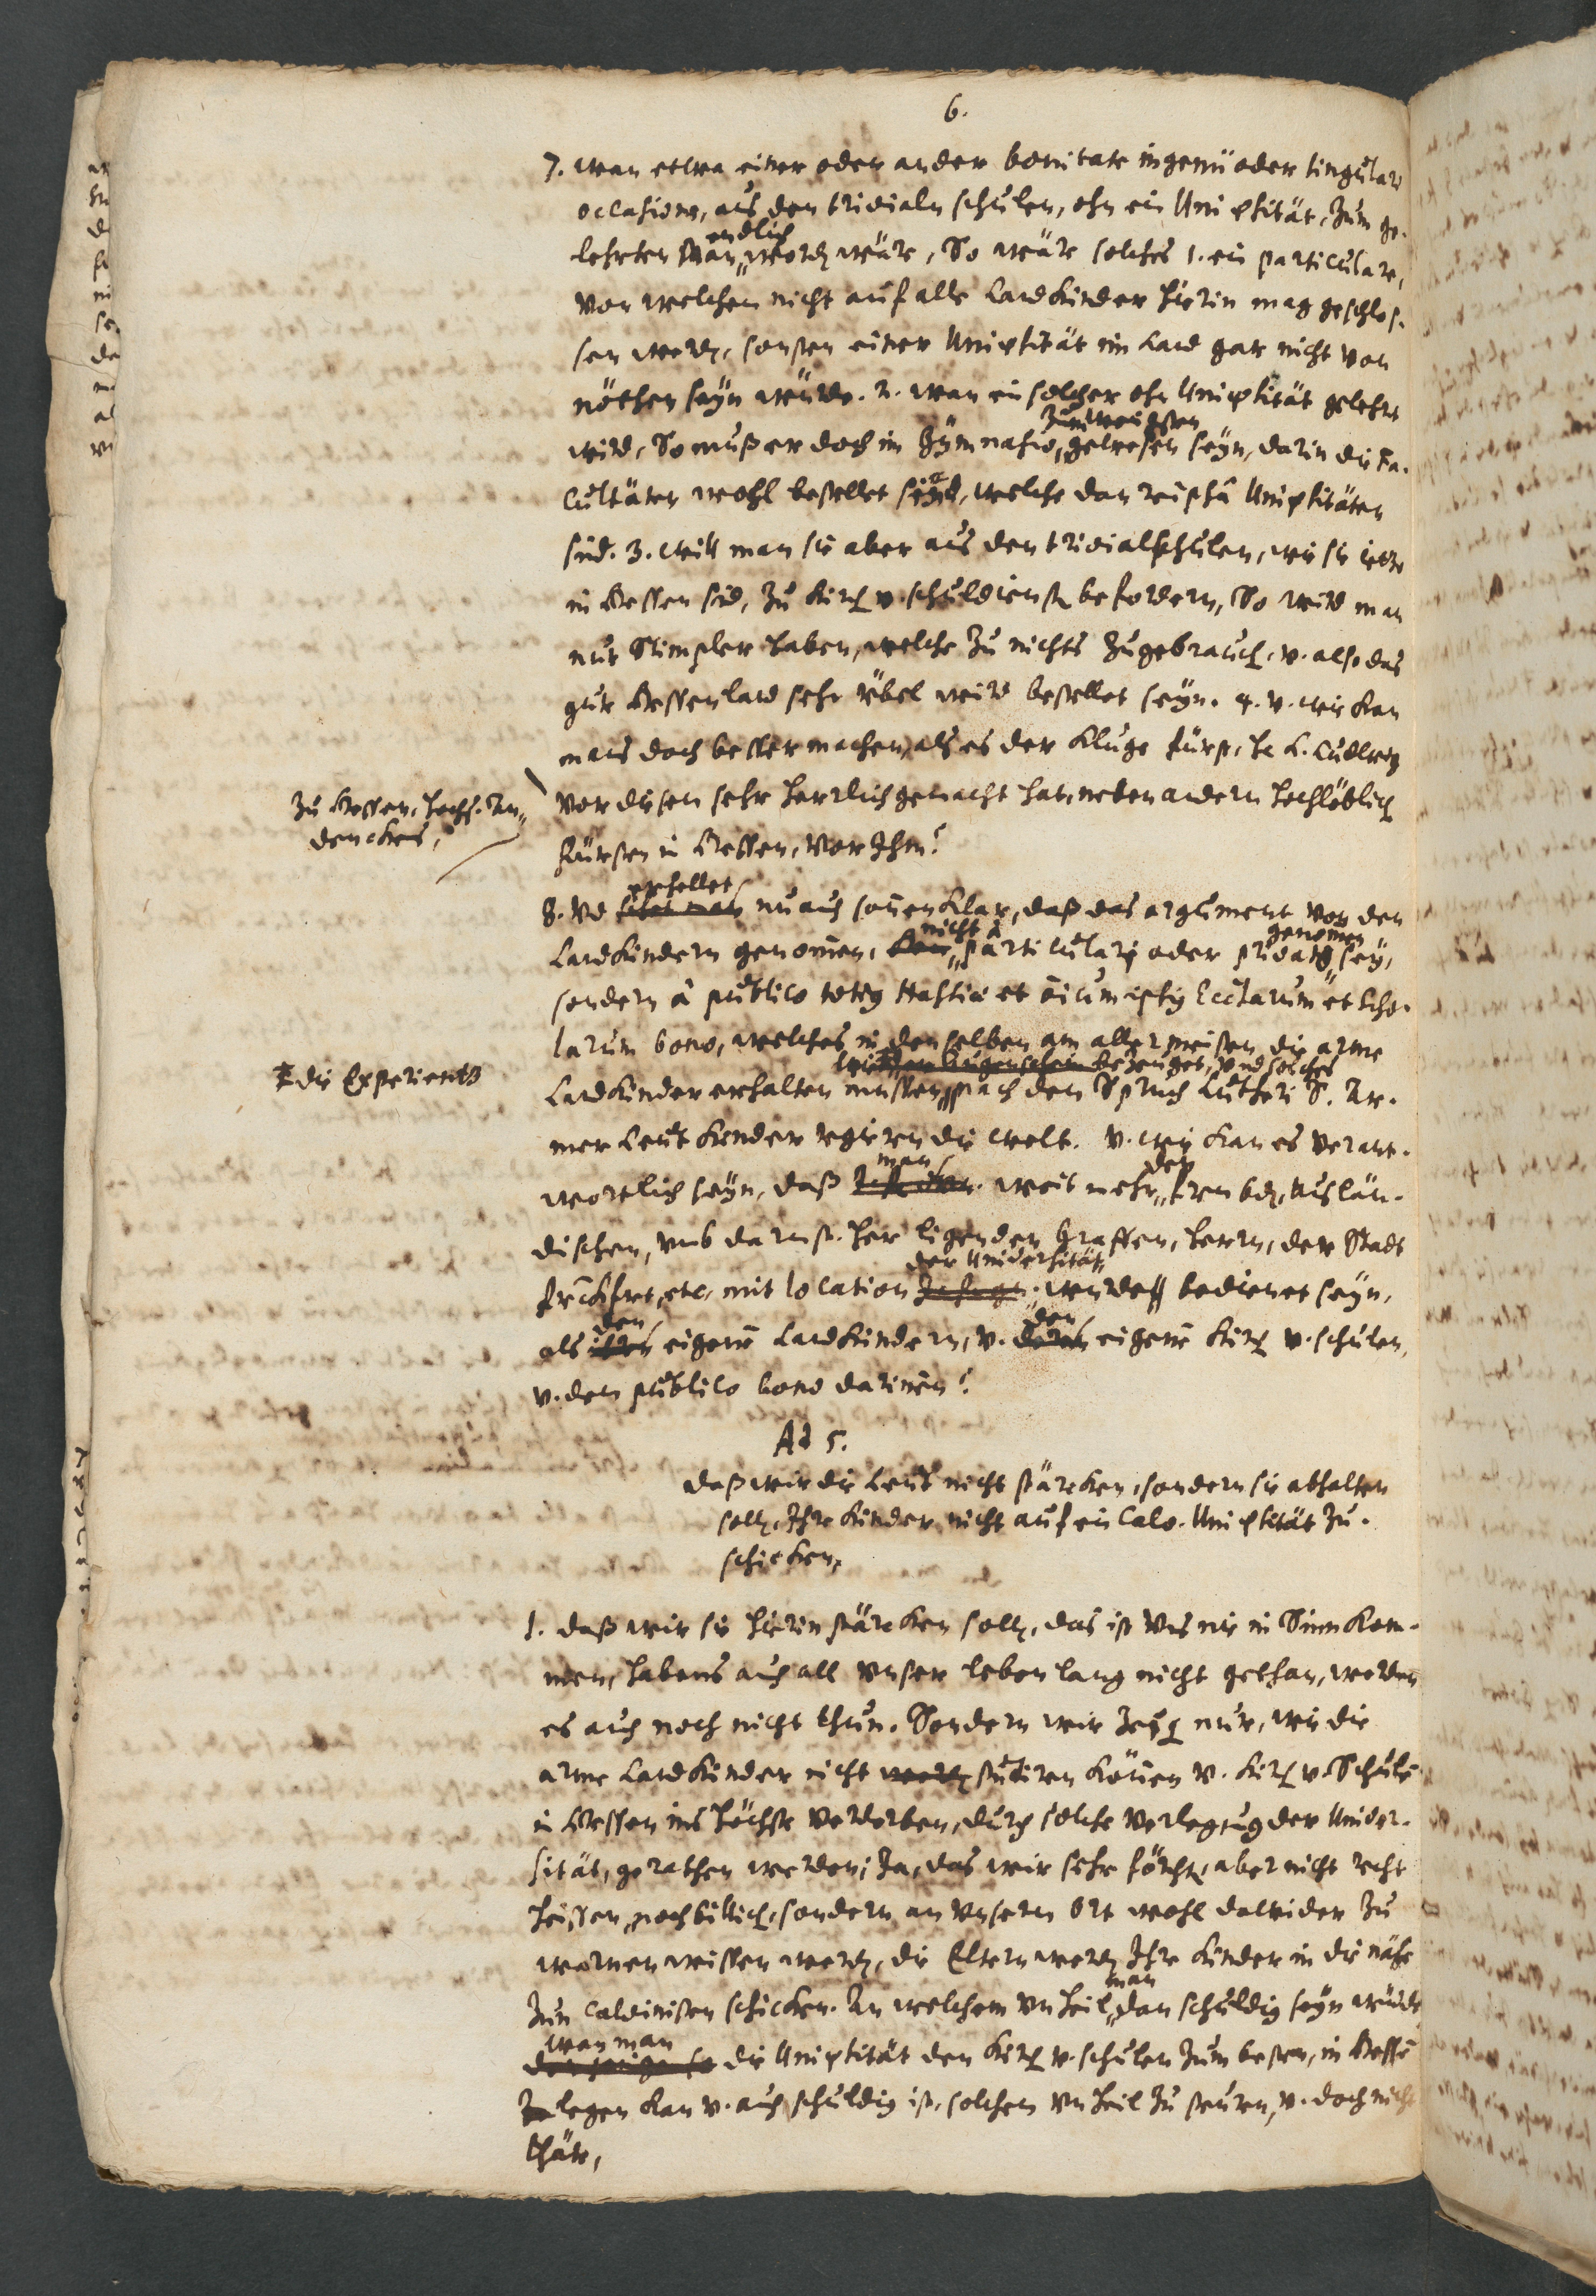 6.
7. wan etwa einer oder ander bonitate ingenii oder singulari
occasione, aus den trivialn schulen, ohn ein Universität, zum ge-
lehrten Man endlich word wäre, So wäre solches 1. ein particulare,
von welchem nicht auf alle Landkinder hierin mag geschlos-
sen werd, sonsten einer Universität im Land gar nicht von
nöthen seÿn würde. 2. wan ein solcher ohn Universität gelehrt
wird, So muß er doch im Gÿmnasio zum wenigsten gewesen seÿn, darin die Fa-
cultäten wohl bestellet sind, welche dan Universitäten
sind. 3. will man sie aber aus den trivialschulen, wie sie jetzo
in Hessen sind, zu kirch v. schuldienst befordern, So wird man
nur Stimpler haben, welche zu nichts zugebrauch, v. also das
gute Hessenland sehr übel wird bestellet seÿn. 4. v. wie kan
mans doch besser machen, als es der kluge fürst, H. L. Ludwig
zu Hessen, hochs. An-
denckens,
vor diesem sehr herrlich gemacht hat, neben andern hochlöblich
fürsten in Hessen, vor Ihm?
8. Vd erhellet nu auch sonnenklar, daß das argument von den
Landkindern genommen, nicht à particulari oder privato genommen seÿ,
sondern à publico totius Hassiae et Ecclarum et Scho-
larum bono, welches in denselben am allermeisten die arme
die Experientz
Landkinder erhalten müssen, bezeuget, vnd solches nach den Spruch Lutheri S. Ar-
mer Leut kinder regieren die welt. v. wie kan es verant-
wortlich seÿn, daß man weit mehr den frembd, Auslän-
dischen, vmb darmst. her ligenden Graffen, herrn, der Stadt
Franckfurt, etc. mit location der Universität, werde bedienet seÿn,
als den eigenen Landkindern, v. den eigenen kirch v. schulen,
v. dem publico bono darinnen?
Ad 5.
daß wir die Leut nicht stärcken, sondern sie abhalten
soll, Ihre kinder nicht auf ein Calv. Universität zu-
schicken,
1. daß wir sie hierin stärcken soll, das ist vns nie in Sinn kom-
men, habens auch all vnser leben lang nicht gethan, werden
es auch noch nicht thun. Sondern wir zeig nur, wie die
arme Landkinder nicht studiren können v. kirch v. Schule
in Hessen ins höchste verderben, durch solche verlegung der Univer-
sität, gerathen werden; Ja, das wir sehr förcht, aber nicht recht
heissen, noch billich, sondern an vnserm Ort wohl dawider zu
warnen wissen werd, die Eltern werd Ihre kinder in die nähe
zun Calvinisten schicken. An welchem vnheil man dan schuldig seÿn würde
wan man die Universität den kirch v. schulen zum besten, in Hessen
legen kan v. auch schuldig ist, solchem vnheil zu steuren, v. doch nicht
thäte,